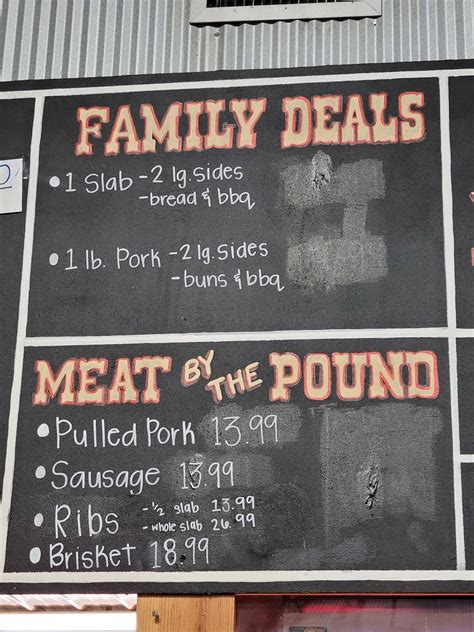 FAMILY DEALS
• 1 Slab - 2 lg. sides
- bread & bbq
• 1 lb. Pork - 2 lg. Sides
- buns & bbq
MEAT BY THE POUND
• Pulled Pork 13.99
• Sausage 13.99
• Ribs - 1/2 slab 13.99
- whole slab 26.99
• Brisket 18.99